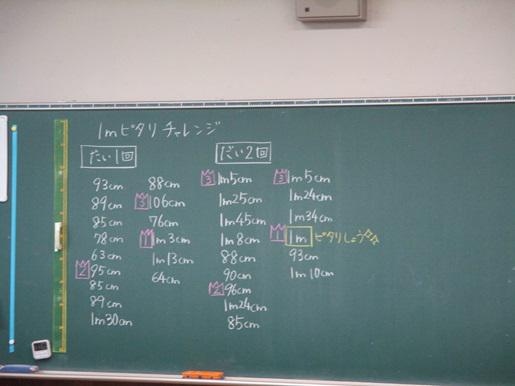 1mピタリチャレンジ
だい1回
93cm
89cm
85cm
78cm
63cm
2 95cm
85cm
89cm
1m30cm
88cm
3 106cm
76cm
1 1m3cm
1m13cm
64cm
だい2回
3 1m5cm
1m25cm
1m45cm
1m8cm
88cm
90cm
2 96cm
1m24cm
85cm
3 1m5cm
1m24cm
1m34cm
1 1m ピタリしょう
93cm
1m10cm